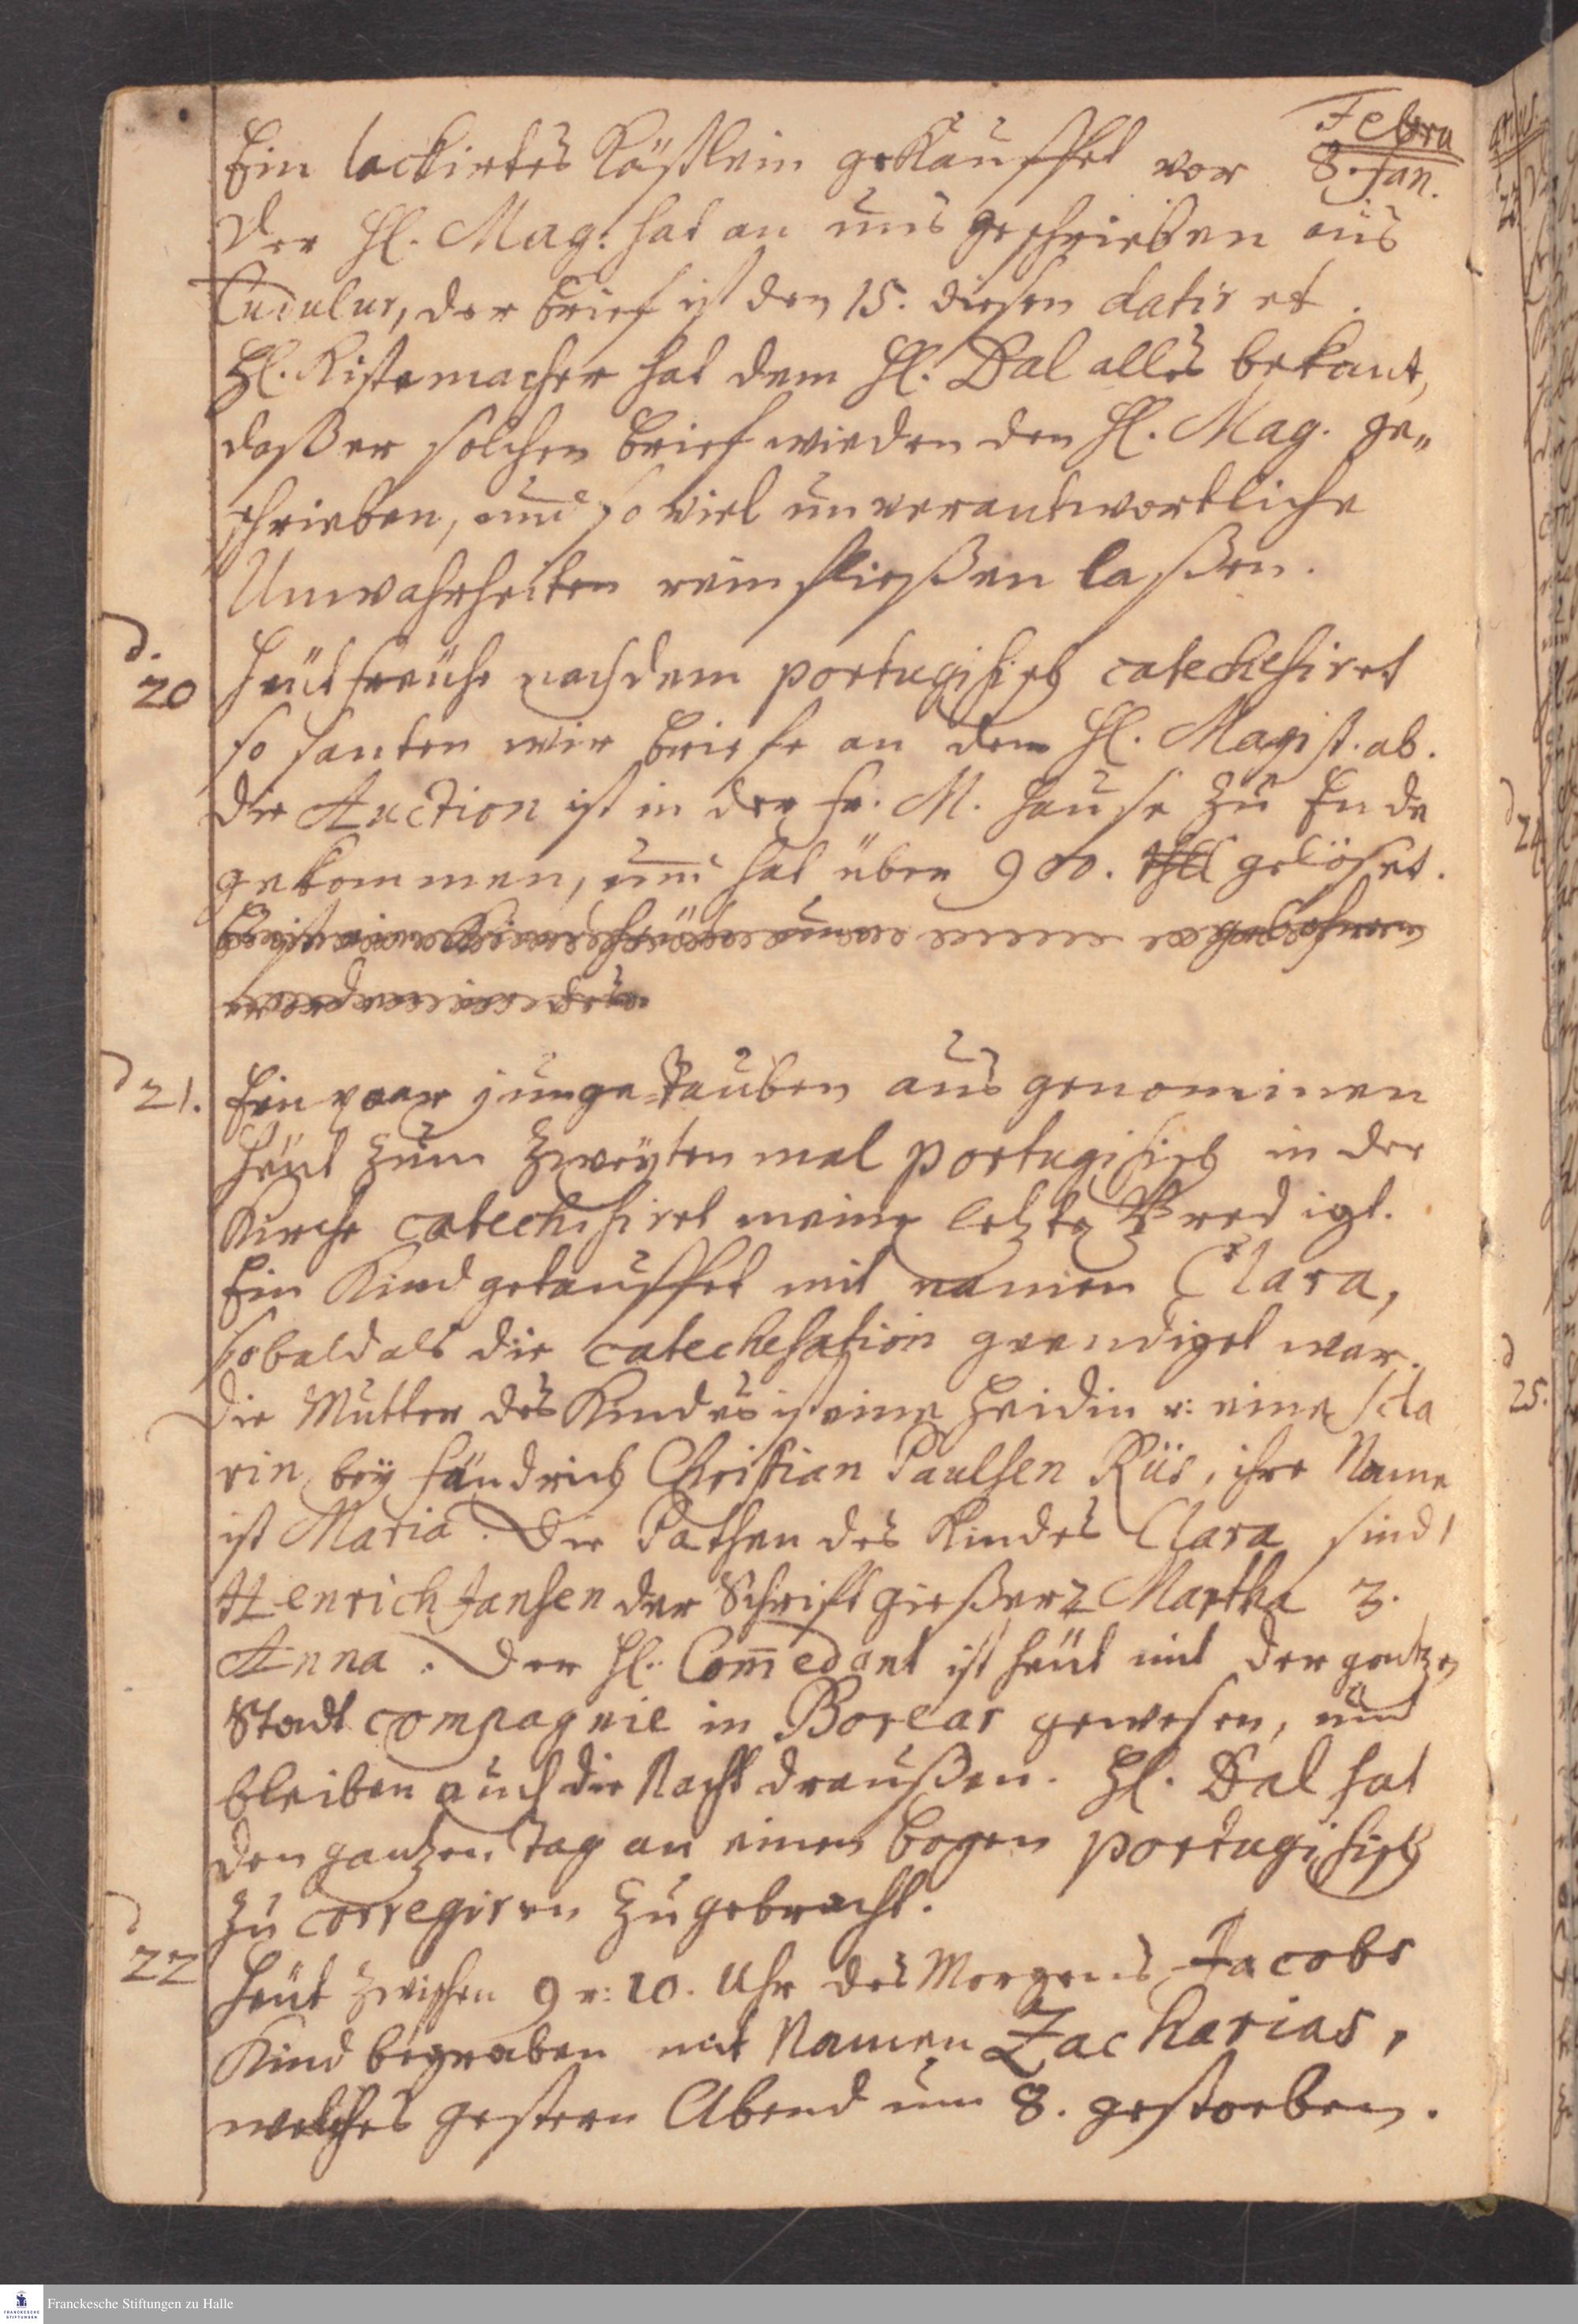 Febru
Ein lackirtes Kästlein gekauffet vor 8. fan.
Der Hl. Mag. hat an uns geschrieben aus
Cudulur, der brief ist den 15. diesen datiret.
Hl. Kistemacher hat dem Hl. Dal alles bekant,
daß er solchen brief wieder den Hl. Mag. ge„
schrieben, und so viel unverantwortliche
Unwahrheiten rein fließen laßen.
d. 20 Heüt frühe nachdem portugisisch catechesiret
so santen wir briefe an den Hl. Magist. ab.
die Auction ist in der fr. M. Hause zu Ende
gekommen, und hat über 900. thll gelöset.
d 21. Ein paar junge Tauben aus genommen
Heüt zum zweyten mal portugisisch in der
Kirche catechisiret meine letzte Predigt.
Ein Kind getauffet mit namen Clara,
so bald als die catechesation geendiget war.
Die Mutter des Kindes ist eine Heidin u: eine scla
rin bey fändrich Christian Paulsen Riis, ihre Name
ist Maria. Die Pathen des Kindes Clara sind 1
Henrich Jansen der Schriftgießer 2 Martha 3.
Anna. Der Hl. Com̅edant ist heüt mit der gantzen
Stadt compagnie in Borear gewesen, und
bleiben auch die Nacht draußen. Hl. Dal hat
den gantzen Tag an einen bogen portugisisch
zu corregiren zugebracht.
d 22 Heüt zwischen 9 u: 10. Uhr des Morgens Jacobs
Kind begraben mit Namen Zacharias,
welches gestern Abend um 8. gestorben.
d 24
d 25.
Franckesche Stiftungen zu Halle